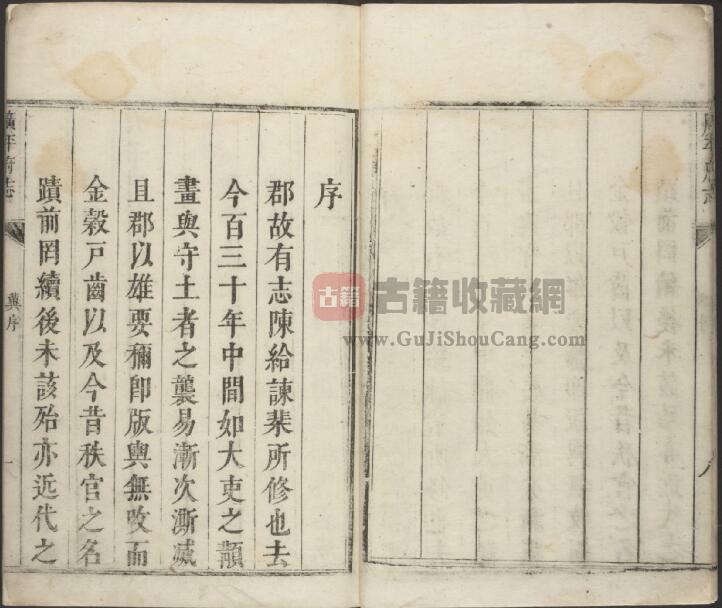 廣平府志
八
序
郡故有志陳給諫棐所修也去
今百三十年中間如大吏之顓
畫與守土者之襲易漸次澌滅
且郡以雄要稱卽版輿無攺而
金穀戸齒以及今昔秩官之名
蹟前罔續後未該殆亦近代之
廣平府志
冀序
一
古籍
古籍收藏網
www.GuJiShouCang.com